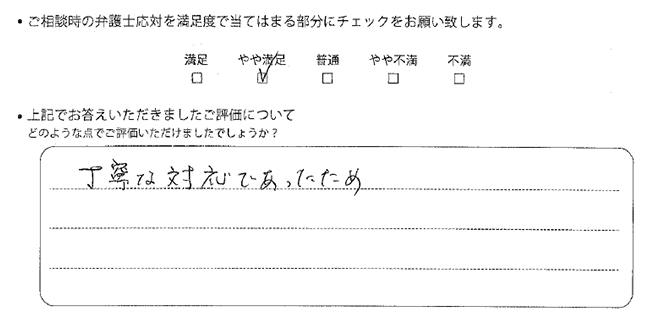 ・ご相談時の弁護士応対を満足度で当てはまる部分にチェックをお願い致します。
満足 やや満足 普通 やや不満 不満
□ ☑ □ □ □
・上記でお答えいただきましたご評価について
どのような点でご評価いただけましたでしょうか？
丁寧な対応であったため